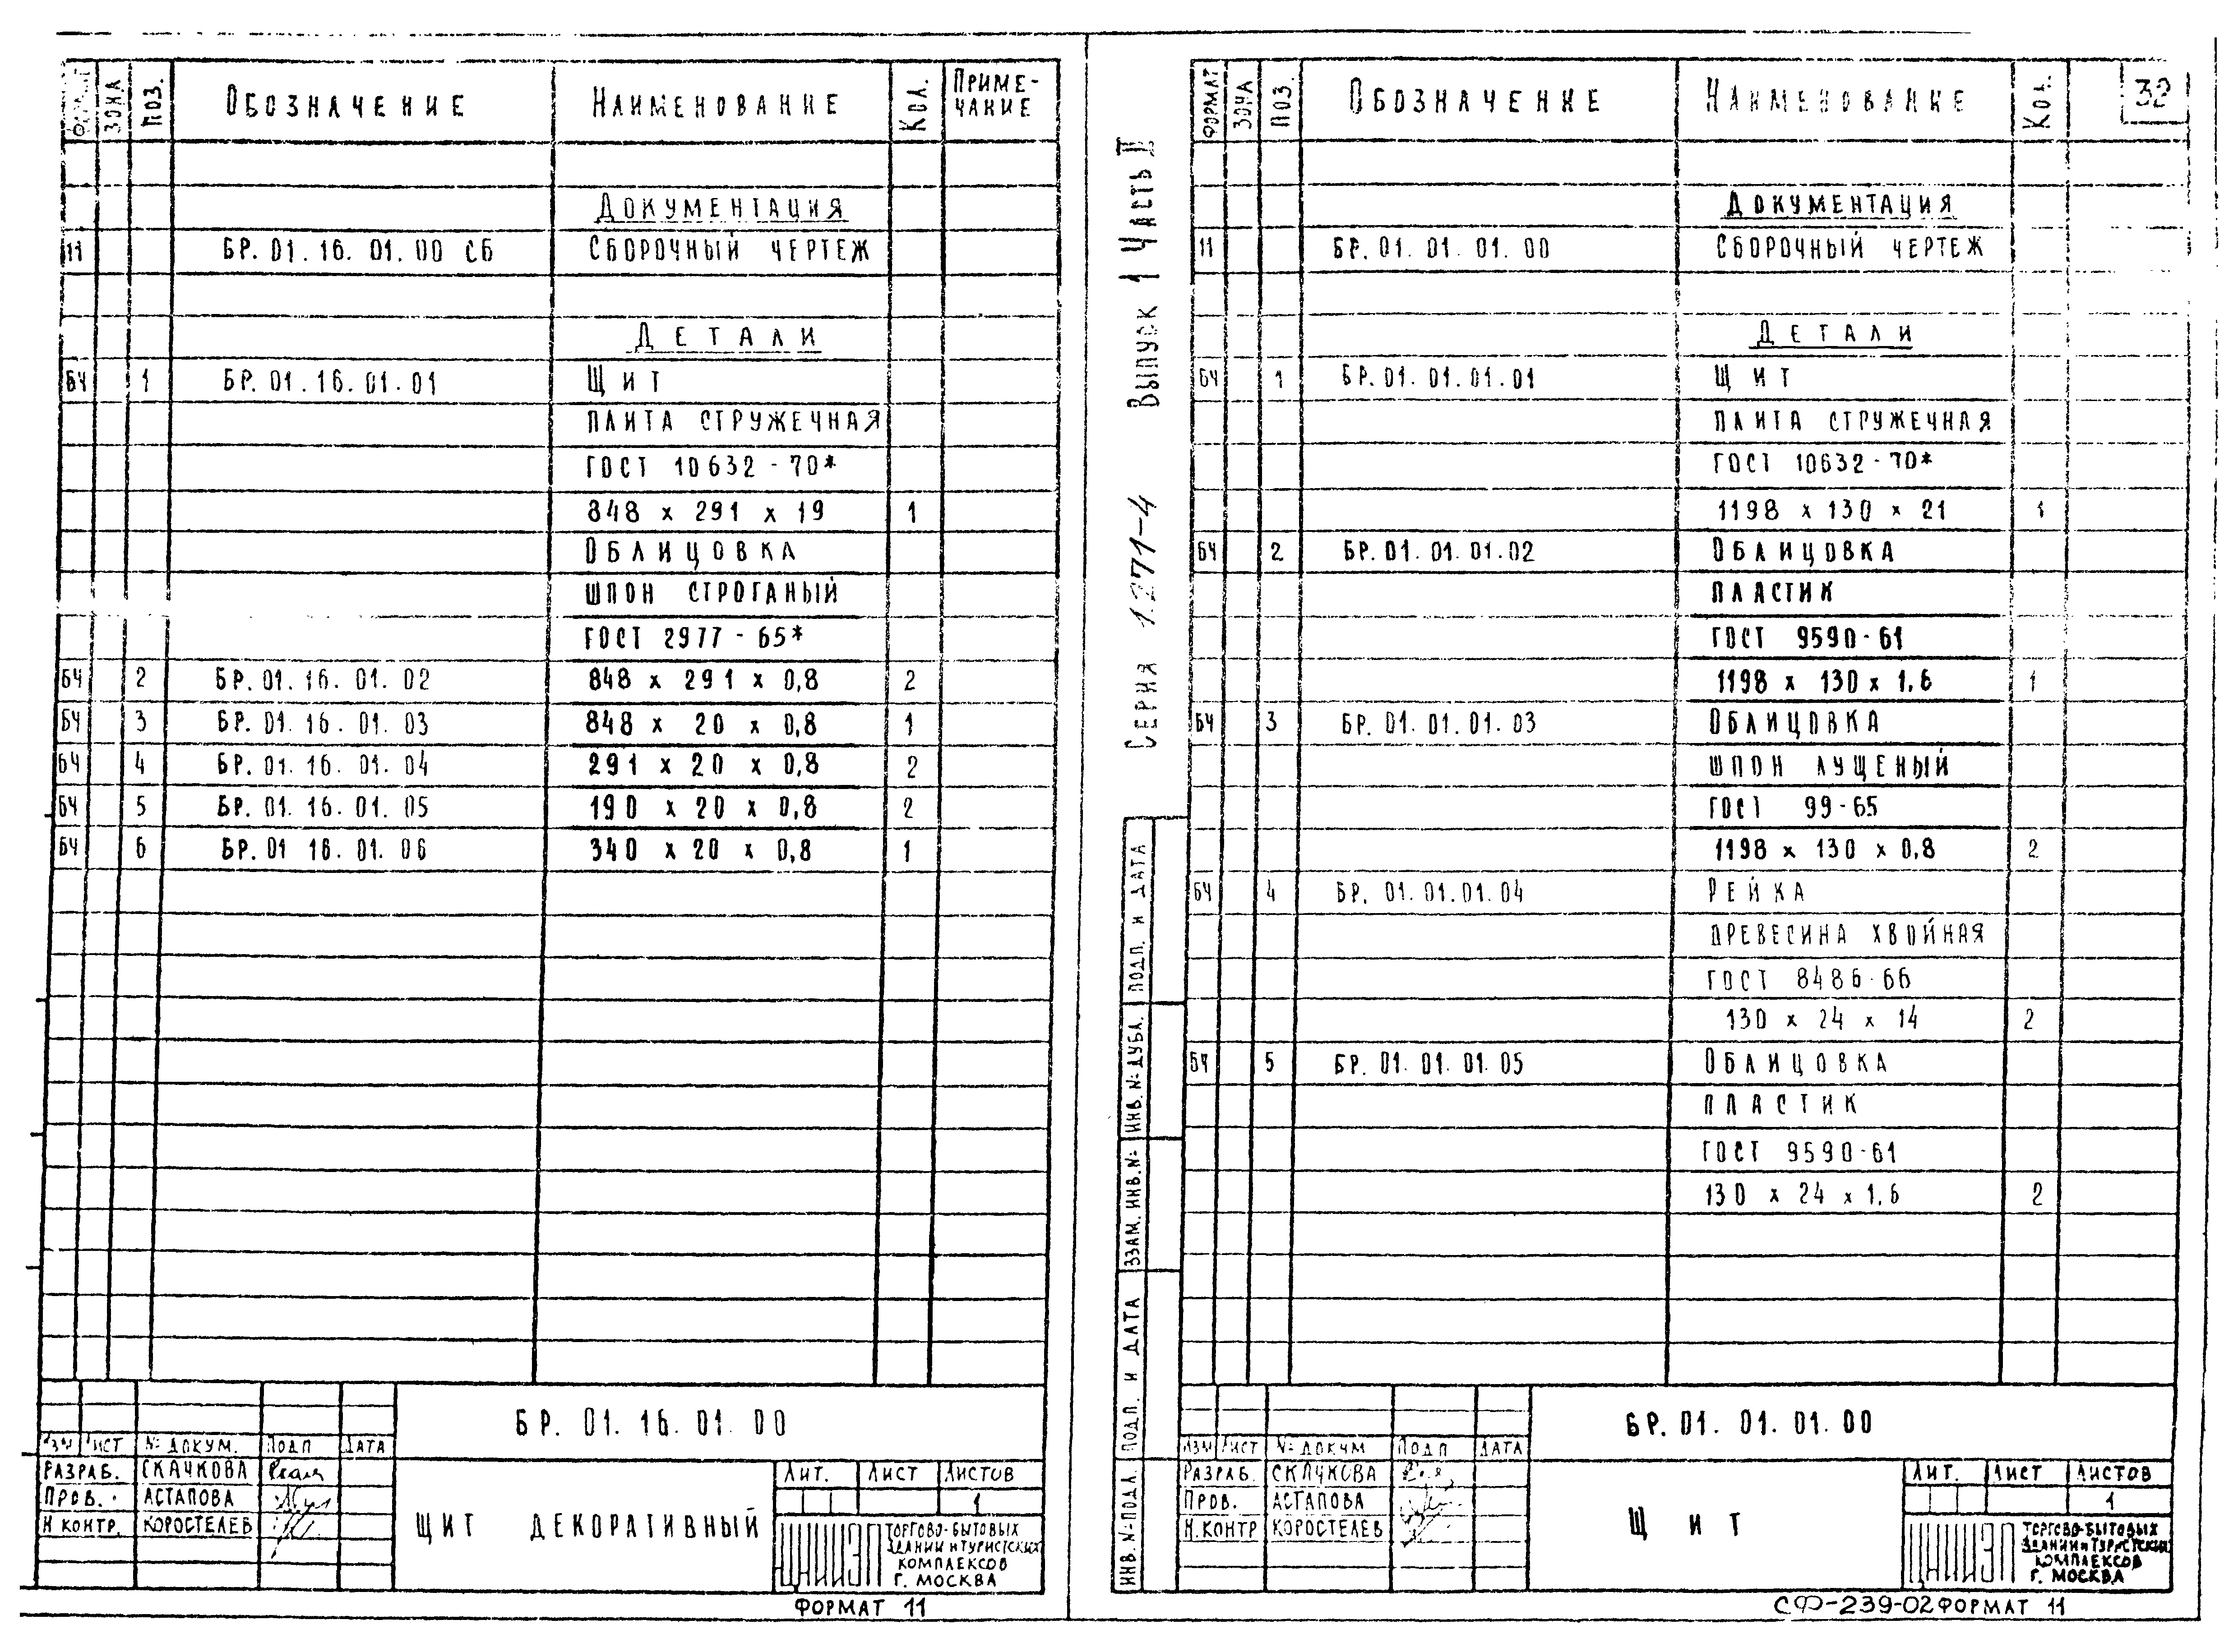 ФОРМАТ ЗОНА ПОЗ. ОБОЗНАЧЕНИЕ НАИМЕНОВАНИЕ КОЛ. ПРИМЕ-
ЧАНИЕ
ДОКУМЕНТАЦИЯ
11 БР. 01. 16. 01. 00 СБ СБОРОЧНЫЙ ЧЕРТЕЖ
ДЕТАЛИ
БЧ 1 БР. 01. 16. 01. 01 ЩИТ
ПЛИТА СТРУЖЕЧНАЯ
ГОСТ 10632-70*
848 х 291 х 19 1
ОБЛИЦОВКА
ШПОН СТРОГАНЫЙ
ГОСТ 2977-65*
БЧ 2 БР. 01. 16. 01. 02 848 х 291 х 0,8 2
БЧ 3 БР. 01. 16. 01. 03 848 х 20 х 0,8 1
БЧ 4 БР. 01. 16. 01. 04 291 х 20 х 0,8 2
БЧ 5 БР. 01. 16. 01. 05 190 х 20 х 0,8 2
БЧ 6 БР. 01 16. 01. 06 340 х 20 х 0,8 1
БР. 01. 16. 01. 00
ИЗМ ЛИСТ № ДОКУМ. ПОДП ДАТА
РАЗРАБ. СКАЧКОВА
ПРОВ. АСТАПОВА
Н КОНТР. КОРОСТЕЛЕВ
ЩИТ ДЕКОРАТИВНЫЙ
ЛИТ. ЛИСТ ЛИСТОВ
1
ЦНИИЭП ТОРГОВО-БЫТОВЫХ
ЗДАНИЙ И ТУРИСТСКИХ
КОМПЛЕКСОВ
Г. МОСКВА
ФОРМАТ 11
СЕРИЯ 1.271-4 ВЫПУСК 1 ЧАСТЬ II
32
ФОРМАТ ЗОНА ПОЗ. ОБОЗНАЧЕНИЕ НАИМЕНОВАНИЕ КОЛ.
ДОКУМЕНТАЦИЯ
11 БР. 01. 01. 01. 00 СБОРОЧНЫЙ ЧЕРТЕЖ
ДЕТАЛИ
БЧ 1 БР. 01. 01. 01. 01 ЩИТ
ПЛИТА СТРУЖЕЧНАЯ
ГОСТ 10632-70*
1198 х 130 х 21 1
БЧ 2 БР. 01. 01. 01. 02 ОБЛИЦОВКА
ПЛАСТИК
ГОСТ 9590-61
1198 х 130 х 1,6 1
БЧ 3 БР. 01. 01. 01. 03 ОБЛИЦОВКА
ШПОН ЛУЩЕНЫЙ
ГОСТ 99-65
1198 х 130 х 0,8 2
БЧ 4 БР. 01. 01. 01. 04 РЕЙКА
ДРЕВЕСИНА ХВОЙНАЯ
ГОСТ 8486-66
130 х 24 х 14 2
БЧ 5 БР. 01. 01. 01. 05 ОБЛИЦОВКА
ПЛАСТИК
ГОСТ 9590-61
130 х 24 х 1,6 2
ИНВ. № ПОДЛ. ПОДП. И ДАТА ВЗАМ. ИНВ. № ИНВ. № ДУБЛ. ПОДП. И ДАТА
БР. 01. 01. 01. 00
ИЗМ ЛИСТ № ДОКУМ ПОДП ДАТА
РАЗРАБ. СКАЧКОВА
ПРОВ. АСТАПОВА
Н. КОНТР КОРОСТЕЛЕВ
ЩИТ
ЛИТ. ЛИСТ ЛИСТОВ
1
ЦНИИЭП ТОРГОВО-БЫТОВЫХ
ЗДАНИЙ И ТУРИСТСКИХ
КОМПЛЕКСОВ
Г. МОСКВА
СФ-239-02 ФОРМАТ 11